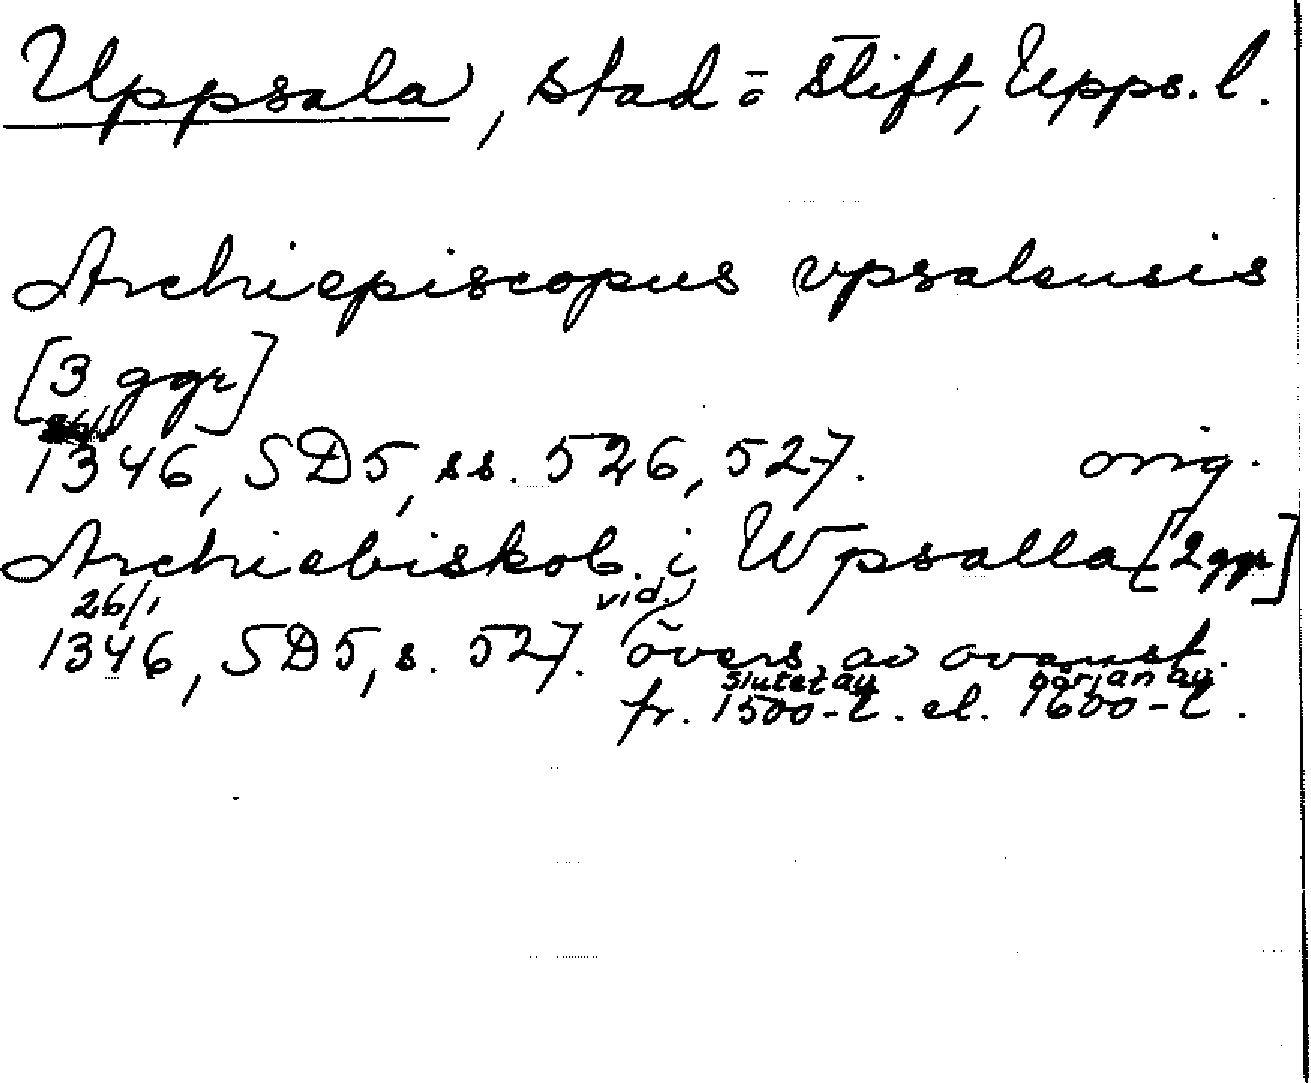 Uppsala, stad o stift, Upps. l.
Archiepiscopus vpsalensis
[3 ggr]
26/1
1346, SD5, ss. 526, 527. orig.
Archiebiskob i Wpsalla [2 ggr]
26/1 vid.
1346, SD5, s. 527. övers. av ovanst.
slutet av början av
fr. 1500-t. el. 1600-t.